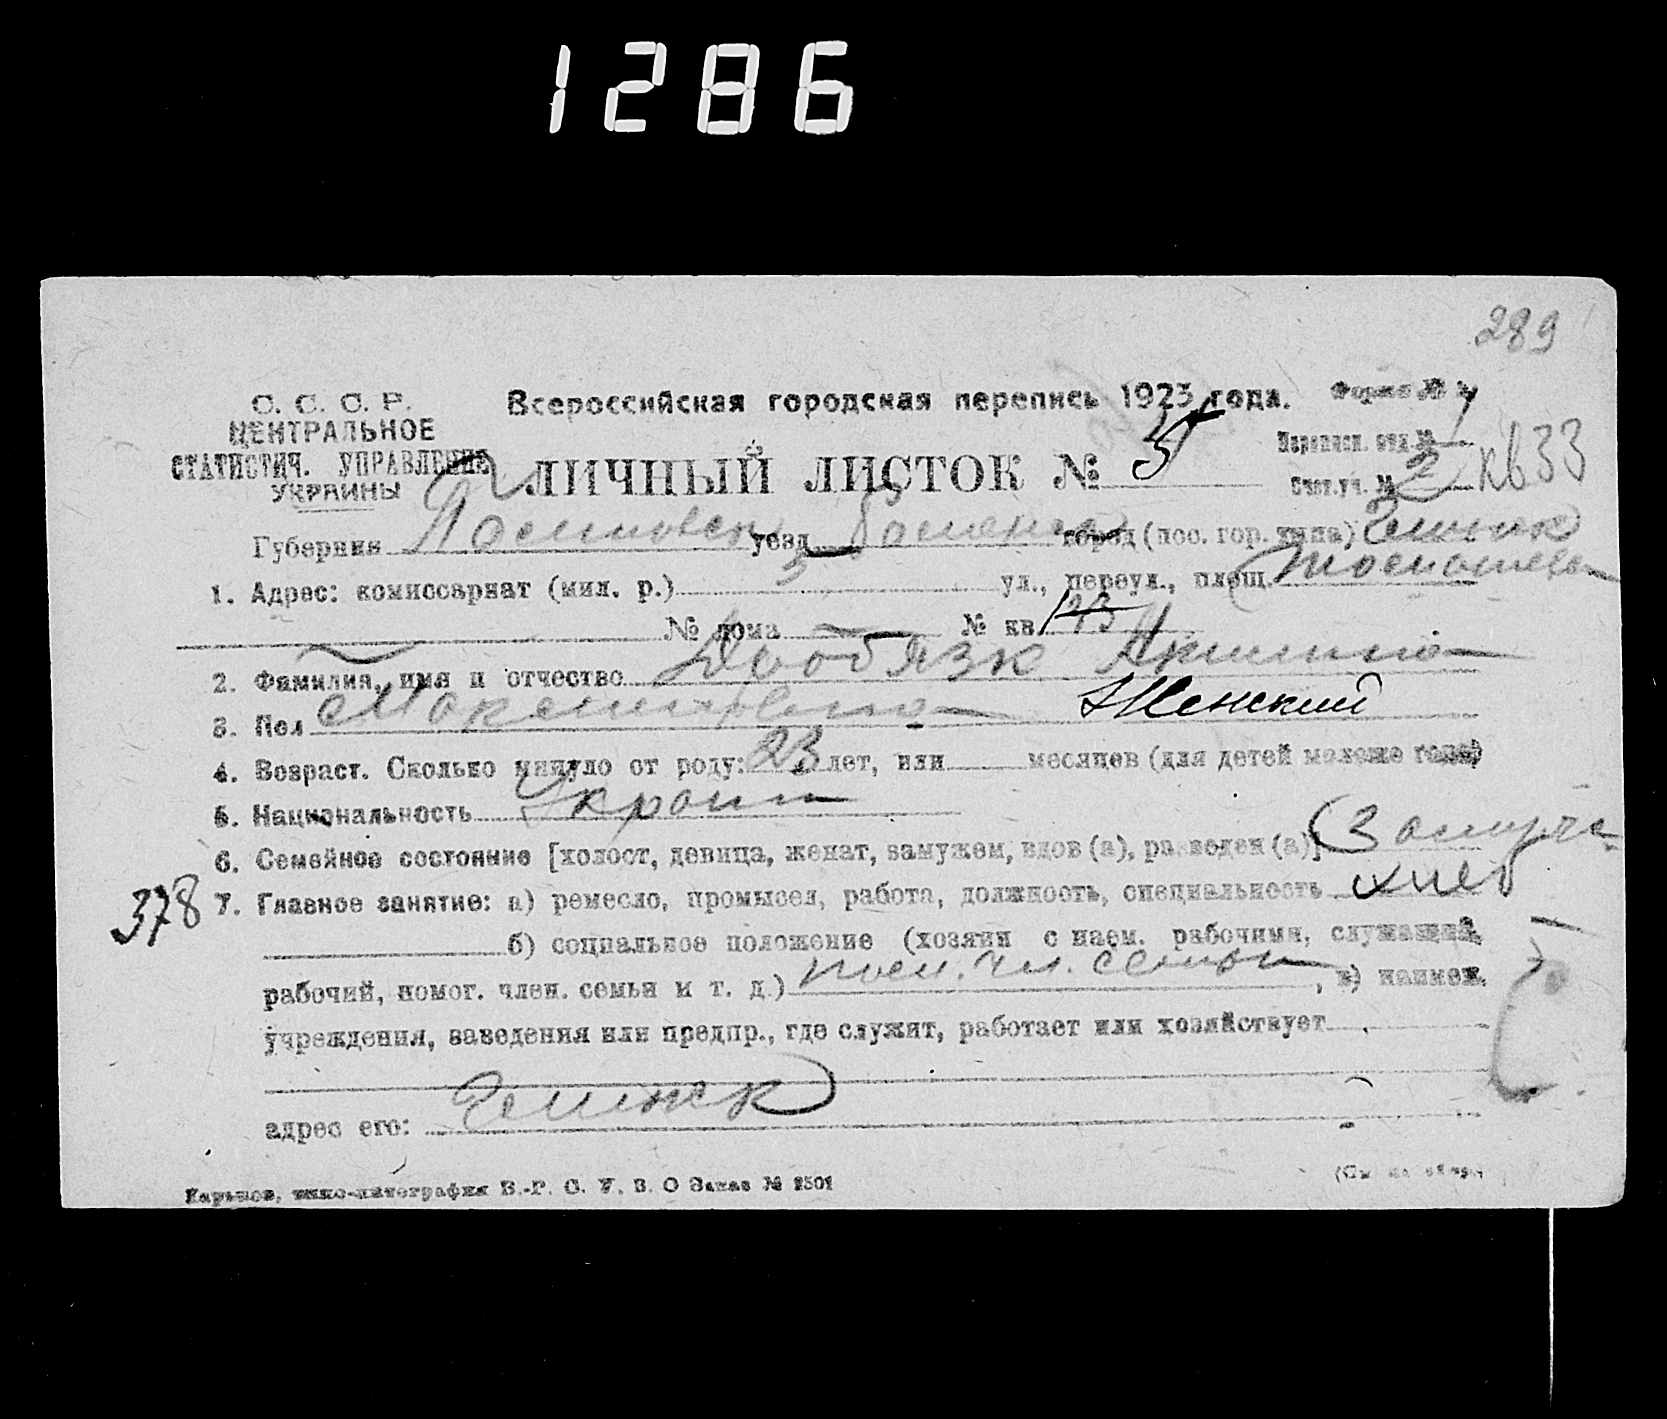 1286
289
С. С. С. Р.
ЦЕНТРАЛЬНОЕ
СТАТИСТИЧ. УПРАВЛЕНИЕ
УКРАИНЫ
Всероссийская городская перепись 1923 года.
ЛИЧНЫЙ ЛИСТОК № 5
Форма № 1
Переписн. отд. № 1
Счет. уч. № 2 кв 33
Губерния уезд город (пос. гор. типа)
1. Адрес: комиссариат (мил. р.) ул., переул., площ.
№ дома № кв
2. Фамилия, имя и отчество
3. Пол Женский
4. Возраст. Сколько минуло от роду: 23 лет, или месяцев (для детей моложе года)
5. Национальность Украин
6. Семейное состояние [холост, девица, женат, замужем, вдов (а), разведен (а)]
378 7. Главное занятие: а) ремесло, промысел, работа, должность, специальность хлеб
б) социальное положение (хозяин с наем. рабочими, служащий,
рабочий, помог. член. семьи и т. д.) пом. чл. семьи, в) наимен.
учреждения, заведения или предпр., где служит, работает или хозяйствует
адрес его:
Харьков, типо-литография В.-Г. С. У. В. О Заказ № 2501